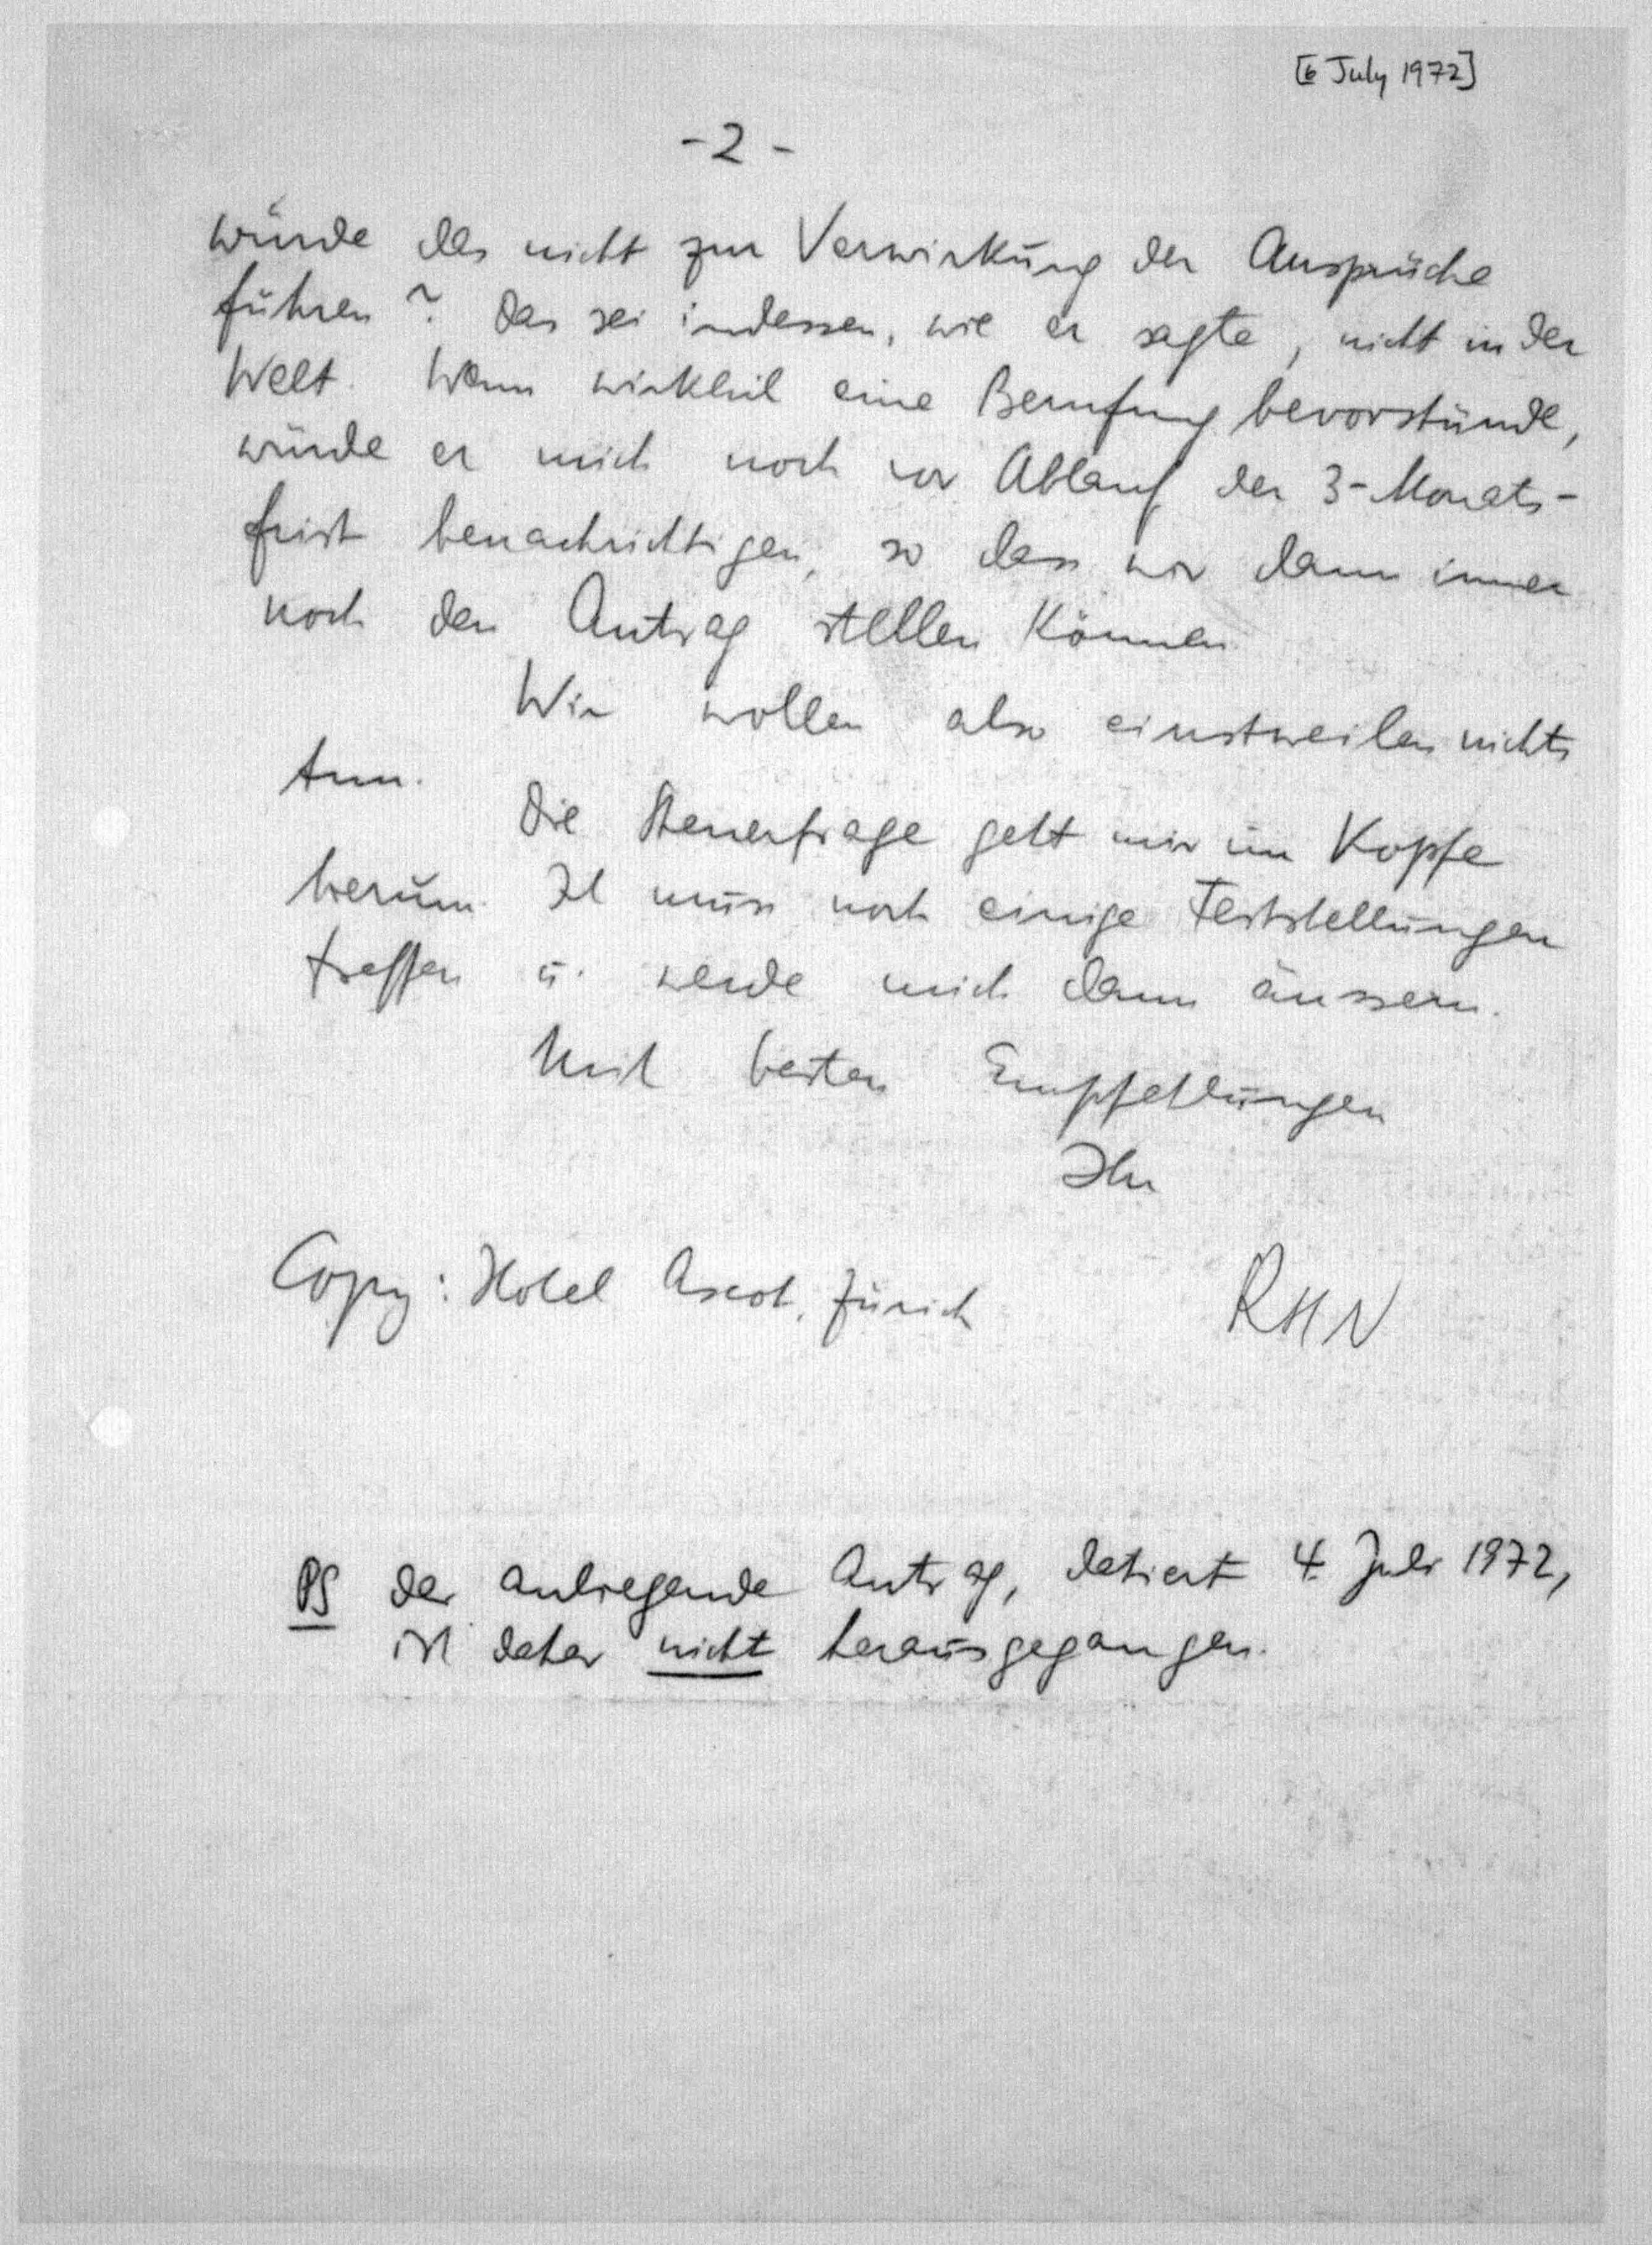 [6 July 1972]
- 2 -
würde das nicht zur Verwirkung der Ansprüche
führen? Das sei indessen, wie er sagte, nicht in der
Welt. Wenn wirklich eine Berufung bevorstünde,
würde er mich noch vor Ablauf der 3-Monats-
frist benachrichtigen, so dass wir dann immer
noch den Antrag stellen können.
Wir wollen also einstweilen nichts
tun.
Die Steuerfrage geht mir im Kopfe
herum. Ich muss noch einige Feststellungen
treffen u. werde mich dann äussern.
Mit besten Empfehlungen
Ihr
Copy: Hotel Ascot, Zürich
RHN
PS der anliegende Antrag, datiert 4. Juli 1972,
ist daher nicht herausgegangen.